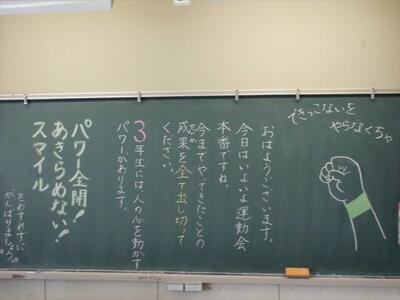 できっこないを
やらなくちゃ
おはようございます。
今日はいよいよ運動会
本番ですね。
今までやってきたことの
成果を全て出し切って
せいか
ください。
3年生には人の心を動かす
パワーがあります。
パワー全開!
あきらめない!
スマイル
をわすれずに
がんばりましょう。